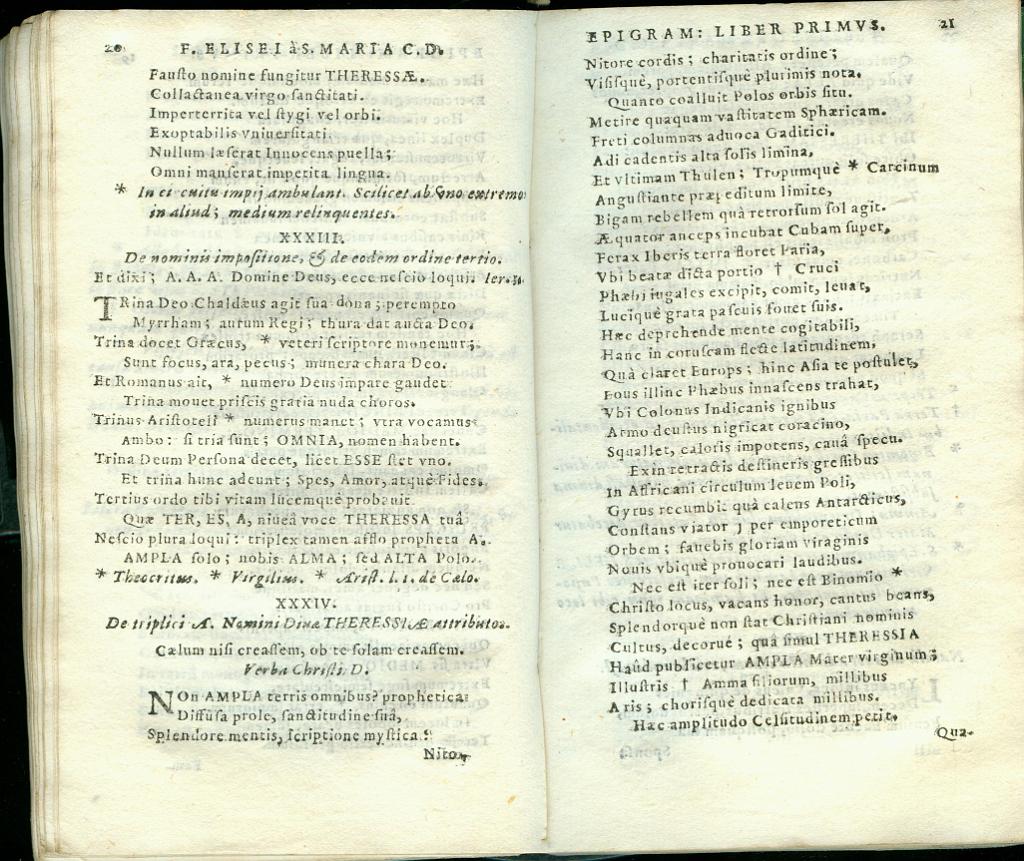 20 F. ELISEI à S. MARIA C. D.
Fausto nomine fungitur THERESSÆ.
Collactanea virgo sanctitati.
Imperterrita vel stygi vel orbi.
Exoptabilis vniuersitati.
Nullum læserat Innocens puella;
Omni manserat impetita lingua.
* In circuitu impij ambulant. Scilicet ab vno extremo
in aliud; medium relinquentes.
XXXIII.
De nominis impositione, & de eodem ordine tertio.
Et dixi; A. A. A. Domine Deus, ecce nescio loqui. Ier.
TRina Deo Chaldæus agit sua dona; perempto
Myrrham; aurum Regi; thura dat aucta Deo.
Trina docet Græcus, * veteri scriptore monemur;
Sunt focus, ara, pecus; munera chara Deo.
Et Romanus ait, * numero Deus impare gaudet
Trina mouet priscis gratia nuda choros.
Trinus Aristoteli * numerus manet; vtra vocamus
Ambo: si tria sunt; OMNIA, nomen habent.
Trina Deum Persona decet, licet ESSE stet vno.
Et trina hunc adeunt; Spes, Amor, atquè Fides.
Tertius ordo tibi vitam lucemquè probauit
Quæ TER, ES, A, niueâ voce THERESSA tuâ
Nescio plura loqui: triplex tamen afflo propheta A.
AMPLA solo; nobis ALMA; sed ALTA Polo.
* Theocritus. * Virgilius. * Arist. l. 1. de Cælo.
XXXIV.
De triplici A. Nomini Diuæ THERESSIÆ attributo.
Cælum nisi creassem, ob te solam creassem.
Verba Christi D.
NOn AMPLA terris omnibus? prophetica
Diffusa prole, sanctitudine suâ,
Splendore mentis, scriptione mystica?
Nito-
EPIGRAM: LIBER PRIMVS. 21
Nitore cordis; charitatis ordine;
Visisquè, portentisquè plurimis nota.
Quanto coalluit Polos orbis situ.
Metire quaquam vastitatem Sphæricam.
Freti columnas aduoca Gaditici.
Adi cadentis alta solis limina,
Et vltimam Thulen; Tropumquè * Carcinum
Angustiante præpeditum limite,
Bigam rebellem quâ retrorsum sol agit.
Æquator anceps incubat Cubam super,
Ferax Iberis terra floret Paria,
Vbi beatæ dicta portio † Cruci
Phæbi iugales excipit, comit, leuat,
Lucique grata pascuis fouet suis.
Hæc deprehende mente cogitabili,
Hanc in coruscam flecte latitudinem,
Quâ claret Europs; hinc Asia te postulet,
Eous illinc Phæbus innascens trahat,
Vbi Colonus Indicanis ignibus
Atmo deustus nigricat coracino,
Squallet, caloris impotens, cauâ specu.
Exin retractis destineris gressibus
In Affricani circulum leuem Poli,
Gyrus recumbit quâ calens Antarcticus,
Constans viator; per emporeticum
Orbem; fauebis gloriam viraginis
Nouis vbiquè prouocari laudibus.
Nec est iter soli; nec est Binomio *
Christo locus, vacans honor, cantus beans,
Splendorquè non stat Christiani nominis
Cultus, decorue; quâ simul THERESSIA
Haûd publicetur AMPLA Mater virginum;
Illustris † Amma filiorum, millibus
Aris; chorisquè dedicata millibus.
Hæc amplitudo Celsitudinem petit.
Qua-